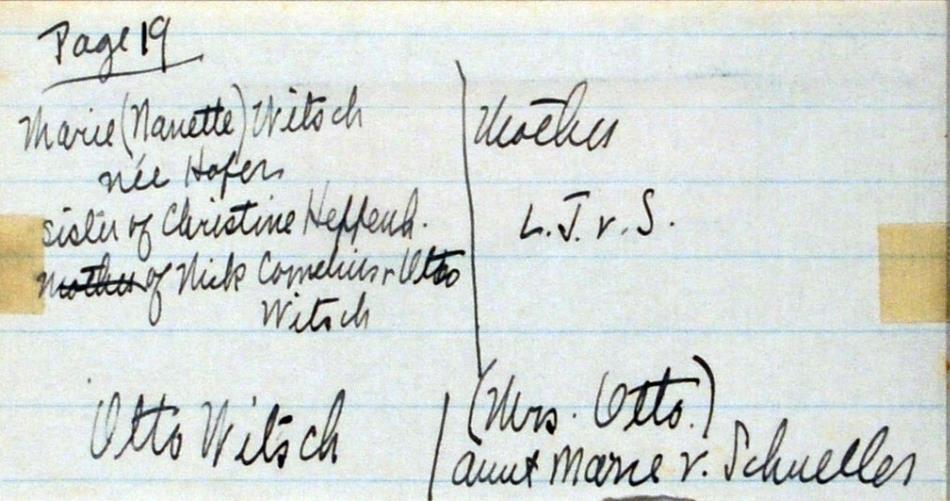 Page 19
Marie (Nanette) Witsch
née Hofer
sister of Christine Heffend.
mother of Nick Cornelius + Otto
Witsch
Mother
L. J. v. S.
Otto Witsch
(Mrs. Otto.)
aunt Marie v. Schueller